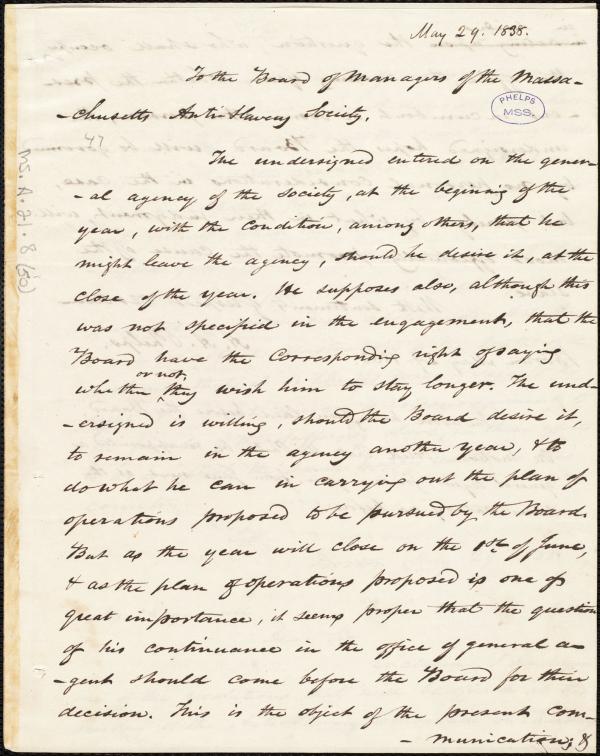 May 29. 1838.
To the Board of Managers of the Massa-
-chusetts Anti-Slavery Society.
PHELPS
MSS.
47
Ms. A. 21. 8 (50)
The undersigned entered on the gener-
-al agency of the Society, at the begining of the
year, with the condition, among others, that he
might leave the agency, should he desire it, at the
close of the year. He supposes also, although this
was not specified in the engagement, that the
Board have the corresponding right of saying
or not
whether they wish him to stay longer. The und-
-ersigned is willing, should the Board desire it,
to remain in the agency another year, & to
do what he can in carrying out the plan of
operations proposed to be pursued by the Board.
But as the year will close on the 1st. of June,
& as the plan of operations proposed is one of
great importance, it seems proper that the question
of his continuance in the office of general a-
-gent should come before the Board for their
decision. This is the object of the present com-
-munication; &